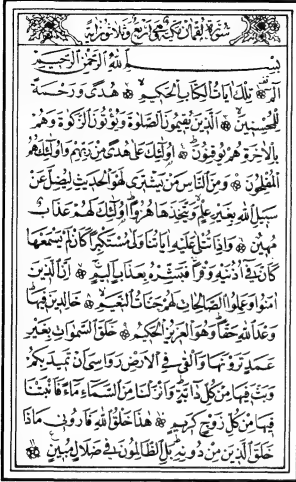 سورة لقمان مكية وهي اربع وثلاثون اية
بِسْمِ اللهِ الرَّحْمٰنِ الرَّحِيمِ
الم تِلْكَ اٰيَاتُ الْكِتَابِ الْحَكِيمِ هُدًى وَرَحْمَةً
لِلْمُحْسِنِينَ اَلَّذِينَ يُقِيمُونَ الصَّلٰوةَ وَيُؤْتُونَ الزَّكٰوةَ وَهُمْ
بِالْاٰخِرَةِ هُمْ يُوقِنُونَ اُولٰئِكَ عَلٰى هُدًى مِنْ رَبِّهِمْ وَاُولٰئِكَ هُمُ
الْمُفْلِحُونَ وَمِنَ النَّاسِ مَنْ يَشْتَرِى لَهْوَ الْحَدِيثِ لِيُضِلَّ عَنْ
سَبِيلِ اللهِ بِغَيْرِ عِلْمٍ وَيَتَّخِذَهَا هُزُوًا اُولٰئِكَ لَهُمْ عَذَابٌ
مُهِينٌ وَاِذَا تُتْلٰى عَلَيْهِ اٰيَاتُنَا وَلّٰى مُسْتَكْبِرًا كَاَنْ لَمْ يَسْمَعْهَا
كَاَنَّ فِى اُذُنَيْهِ وَقْرًا فَبَشِّرْهُ بِعَذَابٍ اَلِيمٍ اِنَّ الَّذِينَ
اٰمَنُوا وَعَمِلُوا الصَّالِحَاتِ لَهُمْ جَنَّاتُ النَّعِيمِ خَالِدِينَ فِيهَا
وَعْدَ اللهِ حَقًّا وَهُوَ الْعَزِيزُ الْحَكِيمُ خَلَقَ السَّمٰوَاتِ بِغَيْرِ
عَمَدٍ تَرَوْنَهَا وَاَلْقٰى فِى الْاَرْضِ رَوَاسِىَ اَنْ تَمِيدَ بِكُمْ
وَبَثَّ فِيهَا مِنْ كُلِّ دَابَّةٍ وَاَنْزَلْنَا مِنَ السَّمَاءِ مَاءً فَاَنْبَتْنَا
فِيهَا مِنْ كُلِّ زَوْجٍ كَرِيمٍ هٰذَا خَلْقُ اللهِ فَاَرُونِى مَاذَا
خَلَقَ الَّذِينَ مِنْ دُونِهِ بَلِ الظَّالِمُونَ فِى ضَلَالٍ مُبِينٍ